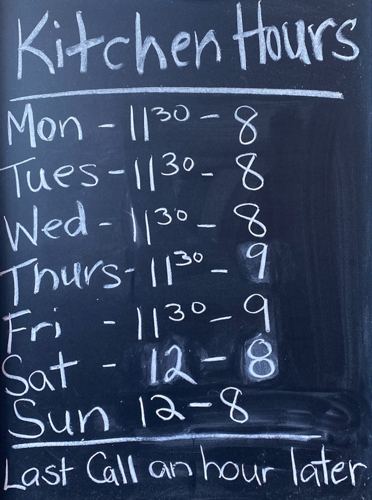 Kitchen Hours
Mon - 11³⁰ - 8
Tues - 11³⁰ - 8
Wed - 11³⁰ - 8
Thurs - 11³⁰ - 9
Fri - 11³⁰ - 9
Sat - 12 - 8
Sun 12 - 8
Last Call an hour later